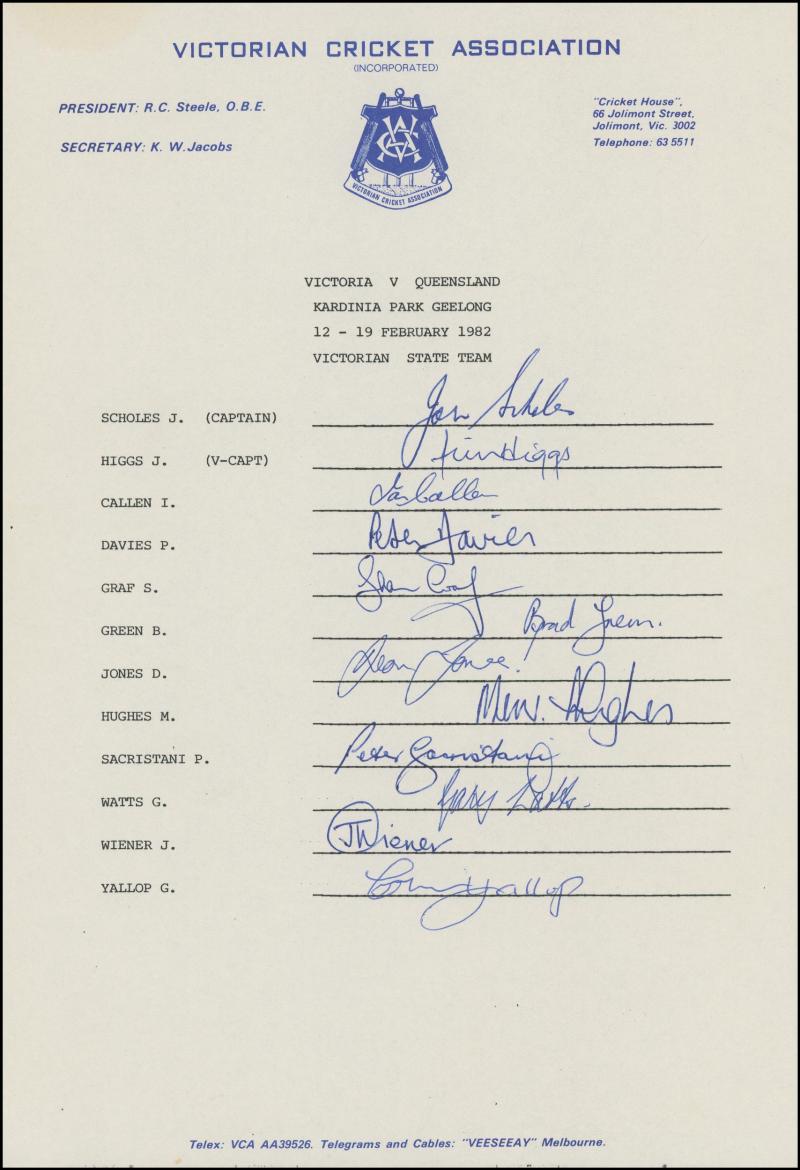 VICTORIAN CRICKET ASSOCIATION
(INCORPORATED)
PRESIDENT: R.C. Steele, O.B.E.
SECRETARY: K. W. Jacobs
"Cricket House",
66 Jolimont Street,
Jolimont, Vic. 3002
Telephone: 63 5511
VCA
VICTORIAN CRICKET ASSOCIATION
VICTORIA V QUEENSLAND
KARDINIA PARK GEELONG
12 - 19 FEBRUARY 1982
VICTORIAN STATE TEAM
SCHOLES J. (CAPTAIN) John Scholes
HIGGS J. (V-CAPT) Jim Higgs
CALLEN I. Ian Callen
DAVIES P. Peter Davies
GRAF S. Shaun Graf
GREEN B. Brad Green.
JONES D. Dean Jones!
HUGHES M. Merv. Hughes
SACRISTANI P. Peter Sacristani
WATTS G. Gary Watts.
WIENER J. J Wiener
YALLOP G. Yallop
Telex: VCA AA39526. Telegrams and Cables: "VEESEEAY" Melbourne.